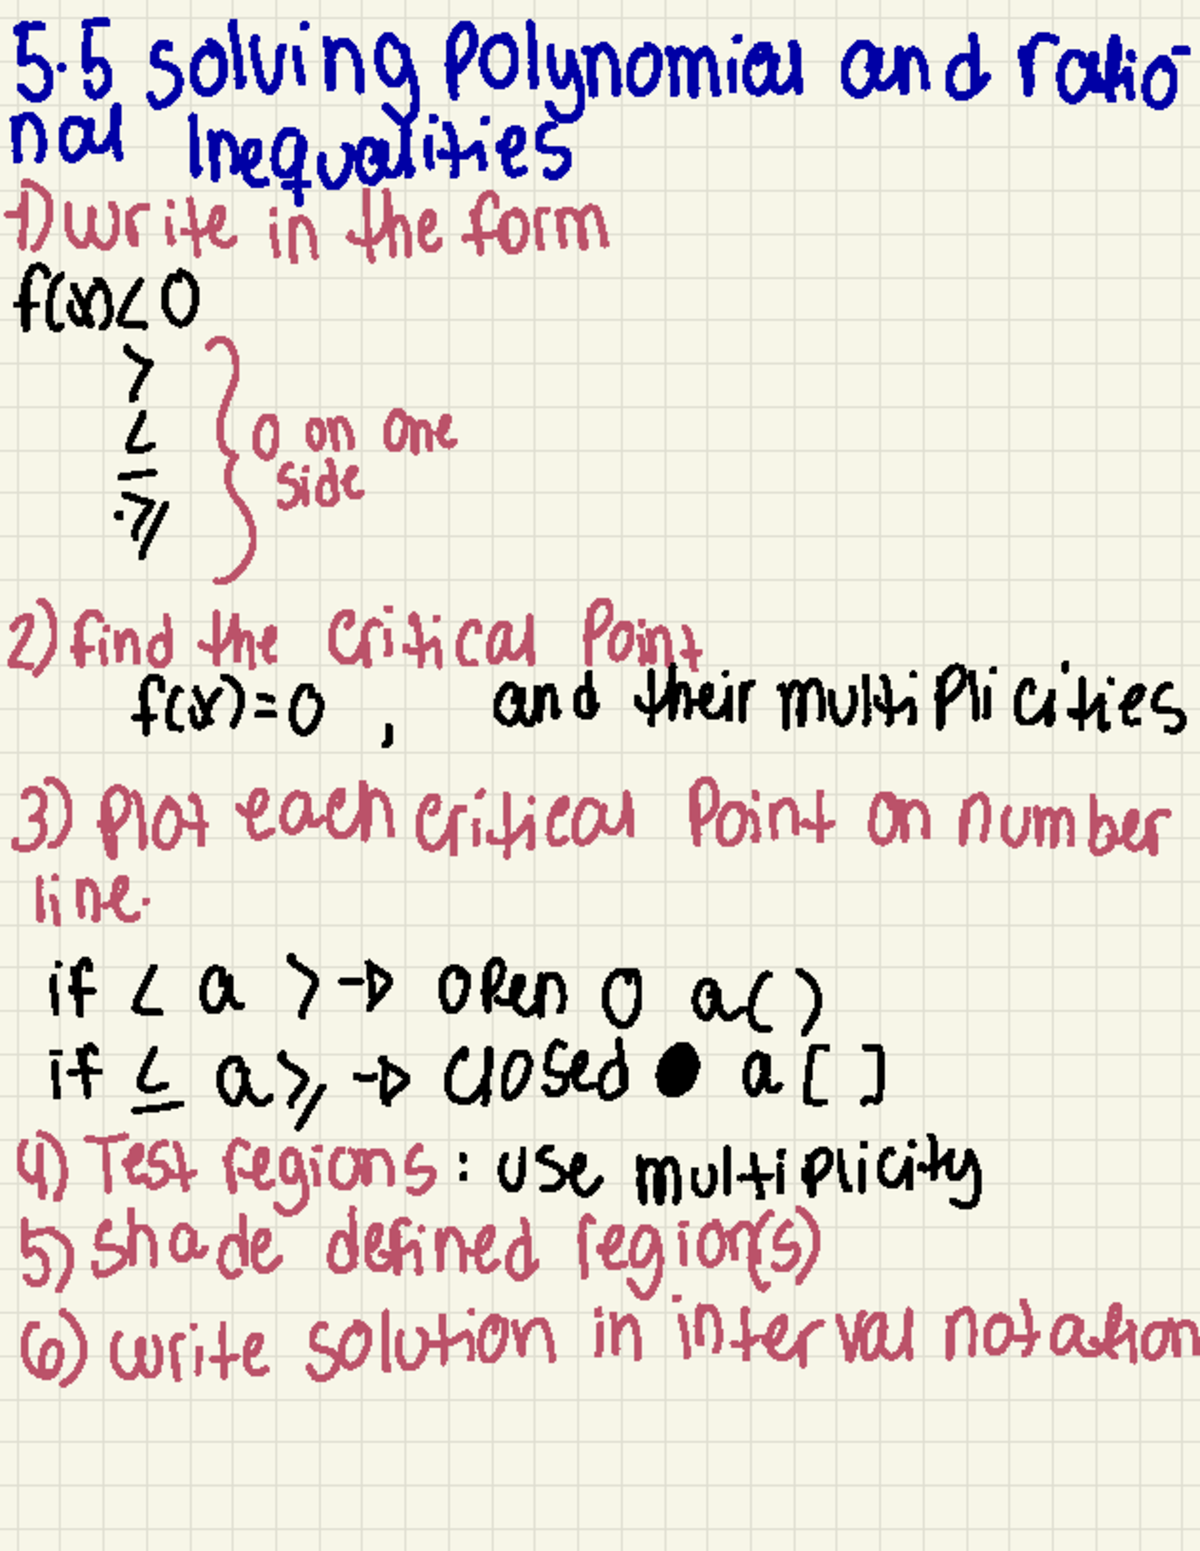 5.5 solving polynomial and ratio-
nal Inequalities
1) write in the form
f(x) < 0
>
≤
⩾
0 on one
side
2) find the critical Point
f(x) = 0 , and their multiplicities
3) Plot each critical Point on number
line.
if < a > → open O a ( )
if ≤ a ⩾ → closed ● a [ ]
4) Test regions : use multiplicity
5) shade defined region(s)
6) write solution in interval notation